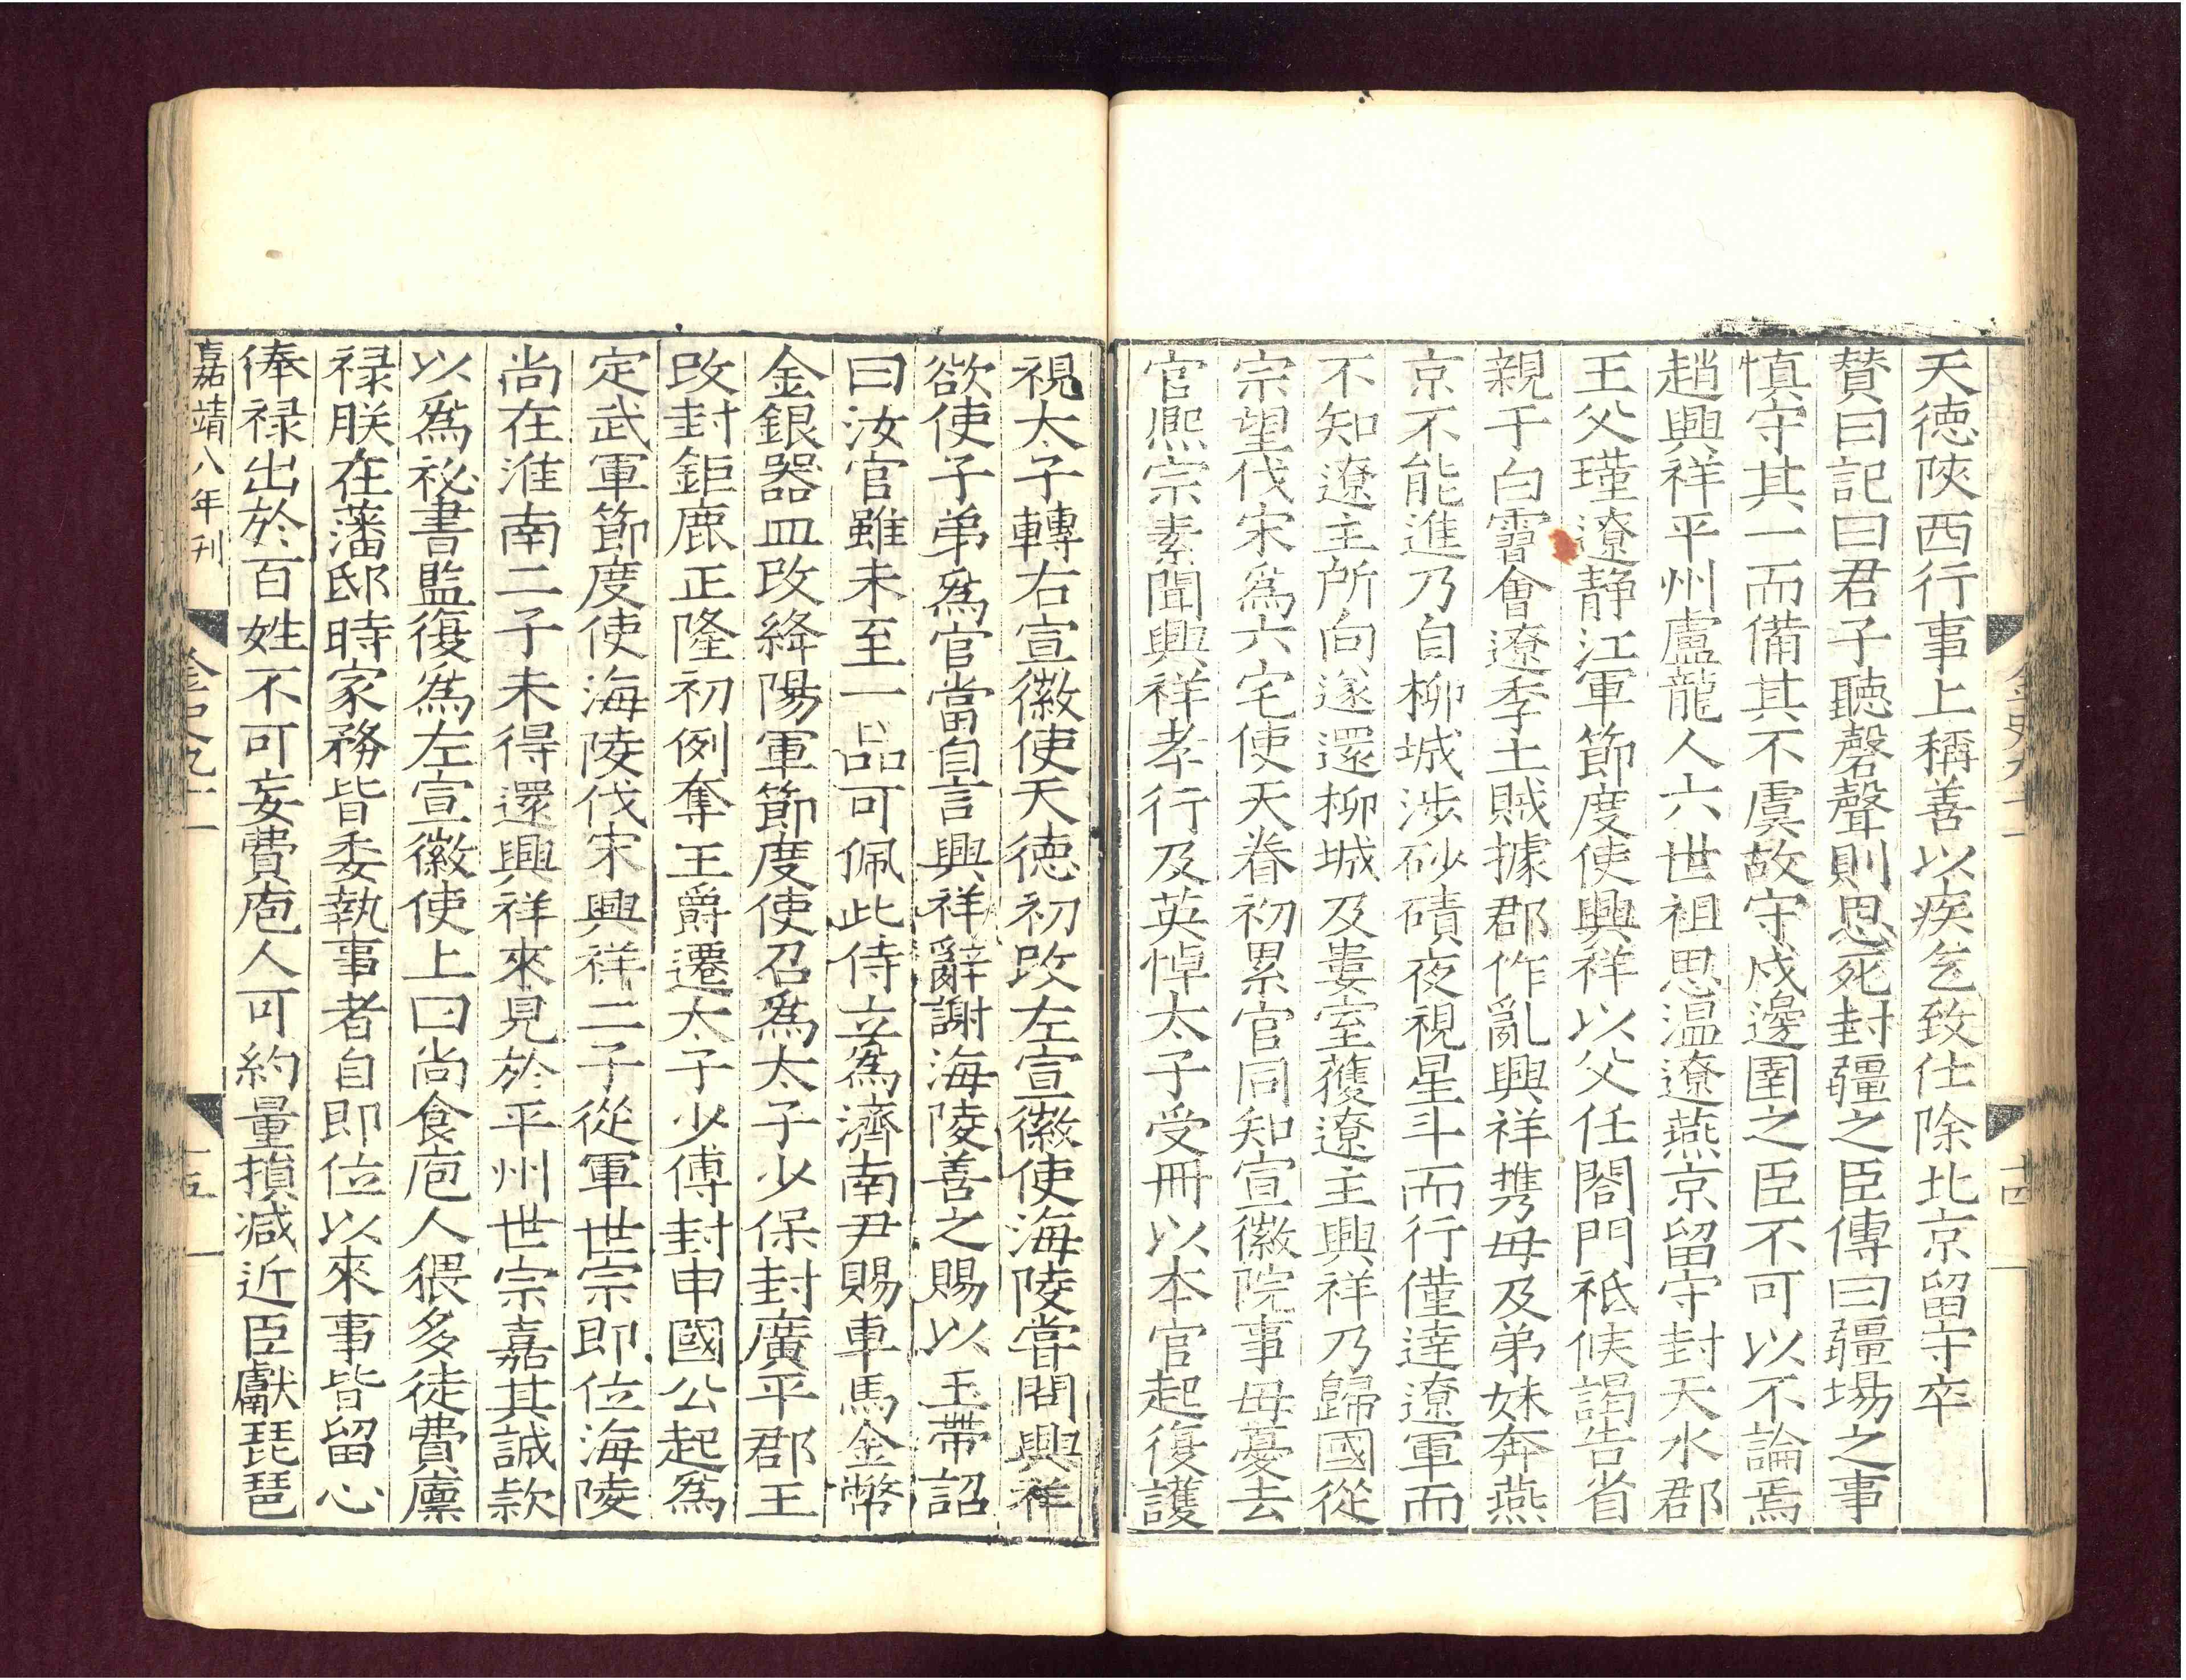 金史九十一
十四
天德陝西行事上稱善以疾乞致仕除北京留守卒
贊曰記曰君子聽磬聲則思死封疆之臣傳曰疆埸之事
慎守其一而備其不虞故守戍邊圉之臣不可以不論焉
趙興祥平州盧龍人六世祖思温遼燕京留守封天水郡
王父瑾遼靜江軍節度使興祥以父任閤門祗候謁告省
親于白霫會遼季土賊據郡作亂興祥携母及弟妹奔燕
京不能進乃自柳城涉砂磧夜視星斗而行僅達遼軍而
不知遼主所向遂還柳城及婁室獲遼主興祥乃歸國從
宗望伐宋爲六宅使天眷初累官同知宣徽院事母憂去
官熈宗素聞興祥孝行及英悼太子受冊以本官起復護
視太子轉右宣徽使天德初改左宣徽使海陵嘗問興祥
欲使子弟爲官當自言興祥辭謝海陵善之賜以玉帶詔
曰汝官雖未至一品可佩此侍立爲濟南尹賜車馬金幣
金銀器皿改絳陽軍節度使召爲太子少保封廣平郡王
改封鉅鹿正隆初例奪王爵遷太子少傅封申國公起爲
定武軍節度使海陵伐宋興祥二子從軍世宗即位海陵
尚在淮南二子未得還興祥來見於平州世宗嘉其誠款
以爲祕書監復爲左宣徽使上曰尚食庖人猥多徒費廩
祿朕在藩邸時家務皆委執事者自即位以來事皆留心
俸祿出於百姓不可妄費庖人可約量損减近臣獻琵琶
嘉靖八年刊
金史九十一
十五